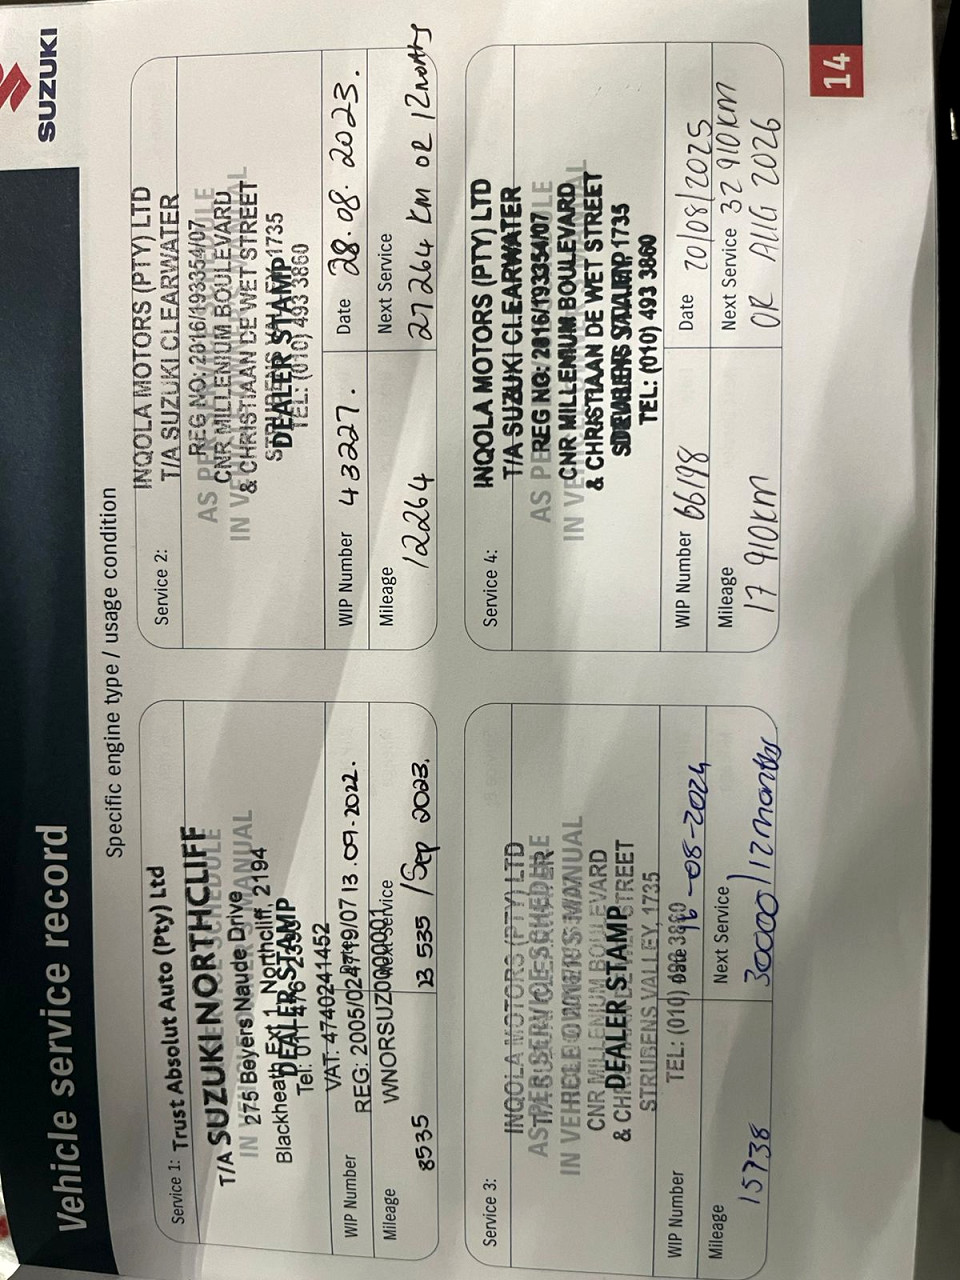 Vehicle service record
SUZUKI
Specific engine type / usage condition
Service 1: Trust Absolut Auto (Pty) Ltd
T/A SUZUKI NORTHCLIFF
275 Beyers Naude Drive
Blackheath Ext 1, Northcliff, 2194
DEALER STAMP
Tel: 011 476
VAT: 4740241452
REG: 2005/024719/07
WNORSUZ0000001
WIP Number
Date 13.09.2022.
Mileage 8535
Next Service 23 535 / Sep 2023.
Service 2:
INQOLA MOTORS (PTY) LTD
T/A SUZUKI CLEARWATER
AS PER SERVICE SCHEDULE
REG NO: 2016/193354/07
IN VEHICLE OWNER'S MANUAL
CNR MILLENIUM BOULEVARD
& CHRISTIAAN DE WET STREET
STRUBENS VALLEY 1735
DEALER STAMP
TEL: (010) 493 3860
WIP Number 43227.
Date 28.08.2023.
Mileage 12264
Next Service 27264 KM OR 12 months
Service 3:
INQOLA MOTORS (PTY) LTD
AS PER SERVICE SCHEDULE
IN VEHICLE OWNER'S MANUAL
CNR MILLENIUM BOULEVARD
DEALER STAMP
& CHRISTIAAN DE WET STREET
STRUBENS VALLEY, 1735
TEL: (010) 493 3860
WIP Number
Date 16-08-2024
Mileage 15738
Next Service 30000 / 12 months
Service 4:
INQOLA MOTORS (PTY) LTD
T/A SUZUKI CLEARWATER
AS PER SERVICE SCHEDULE
REG NO: 2016/193354/07
IN VEHICLE OWNER'S MANUAL
CNR MILLENIUM BOULEVARD
& CHRISTIAAN DE WET STREET
DEALER STAMP
STRUBENS VALLEY 1735
TEL: (010) 493 3860
WIP Number 66198
Date 20/08/2025
Mileage 17 910km
Next Service 32 910km
OR AUG 2026
14